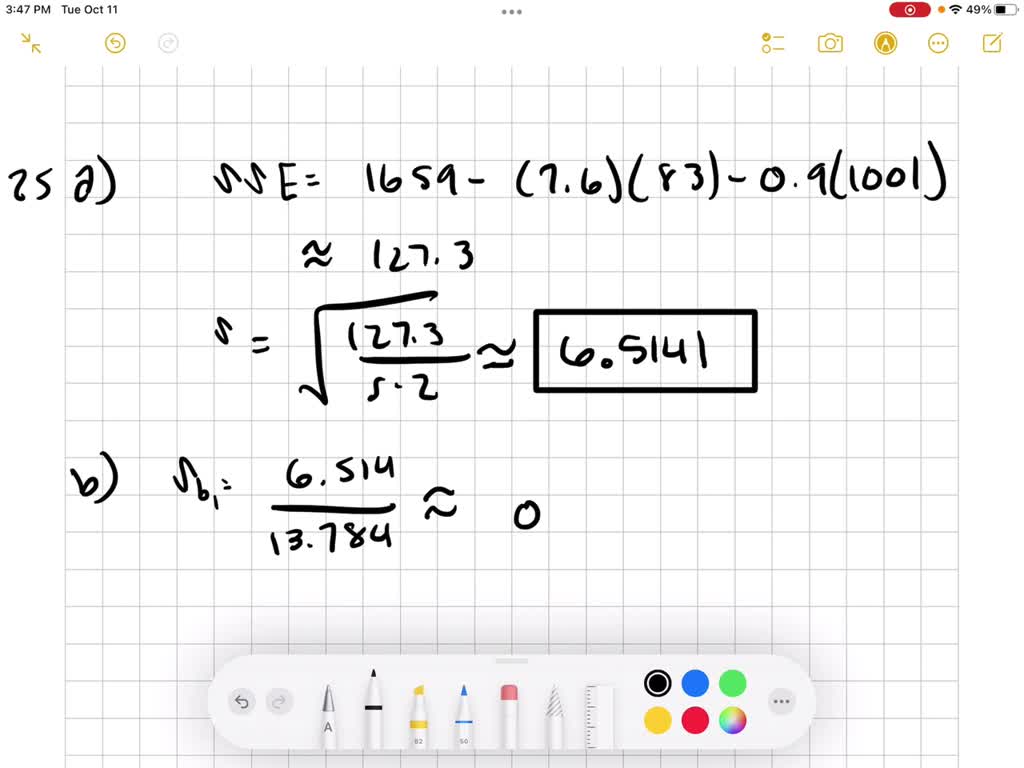 3:47 PM Tue Oct 11
49%
25 a) SSE = 1659 - (7.6)(83) - 0.9(1001)
≈ 127.3
s = √(127.3 / 5-2) ≈ 6.5141
b) S_b1 = 6.514 / 13.784 ≈ 0
A
82
50